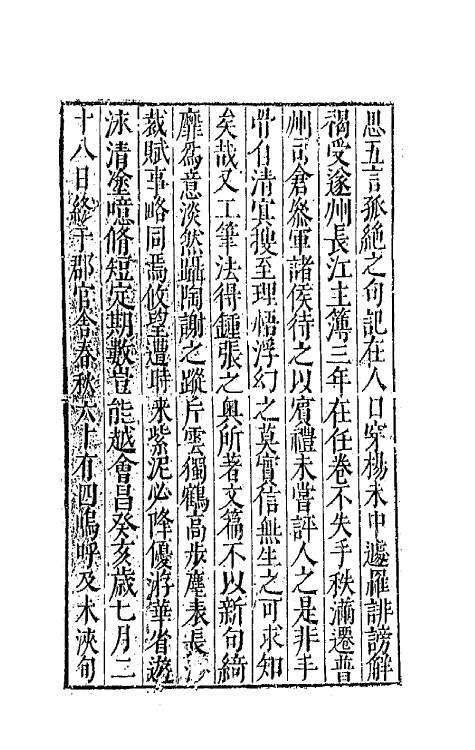 思五言孤絕之句記在人口穿楊未中遽罹誹謗解
褐受遂州長江主簿三年在任卷不失手秩滿遷普
州司倉叅軍諸侯待之以賓禮未嘗評人之是非手
自清寘搜至理悟浮幻之莫實信無生之可求知
矣哉又工筆法得鍾張之奥所著文篇不以新句綺
靡爲意淡然躡陶謝之蹤片雲獨鶴高步塵表長沙
裁賦事略同焉攸望遭時来紫泥必降優游華省遊
泳清塗噫脩短定期數豈能越會昌癸亥歳七月二
十八日終于郡官舎春秋六十有四嗚呼及未浹旬